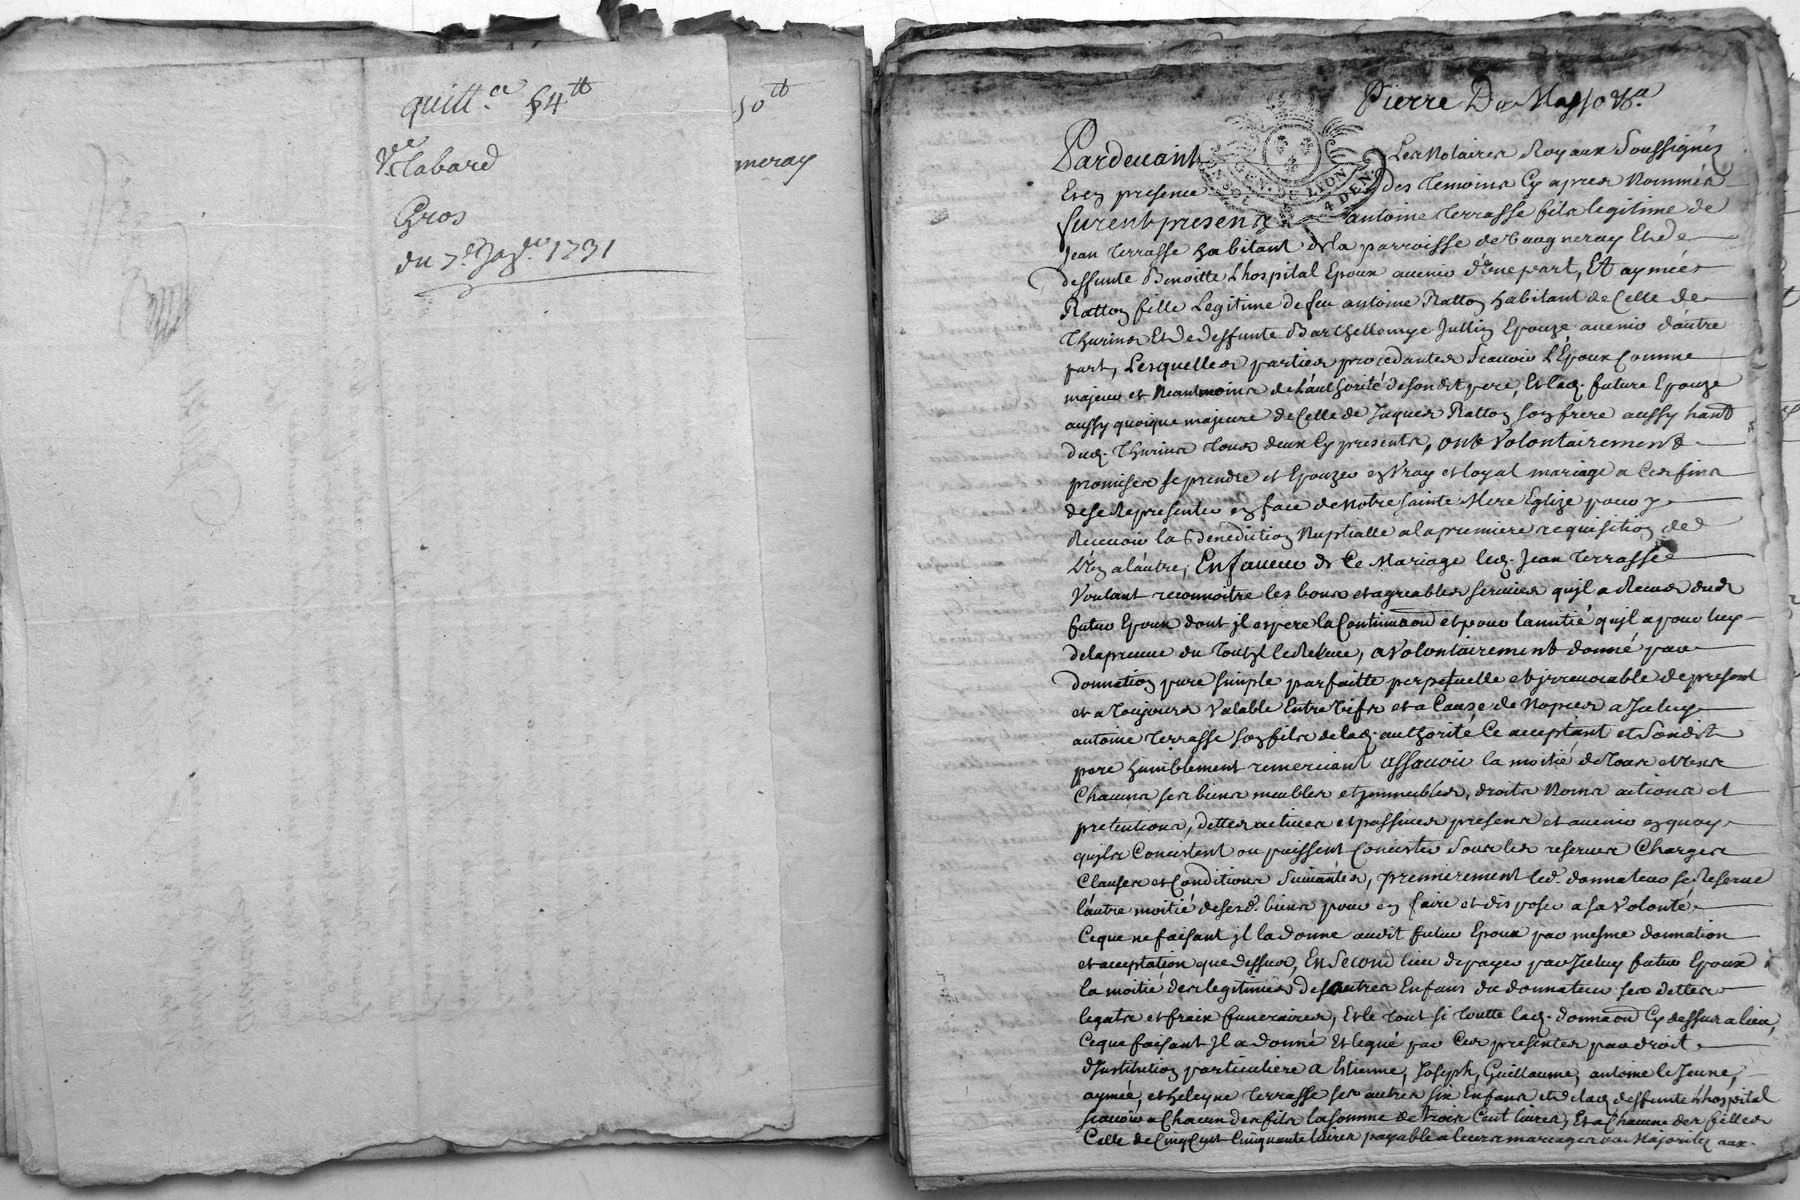 quitt.ce 54tt
ve Tabard
Gros
du 7e Jan.er 1731
50tt
gneray
Pierre De Masso
GEN. DE LYON
4 DEN.
Pardevant Les Notaires Royaux Soussignéz
Et en presence des Temoins Cy apres Nommés
furent presents antoine Terrasse fils legitime de
Jean Terrasse habitant de la parroisse de Vaugneray Et de
deffunte Benoitte Lhospital Epoux avenir d'Une part, Et aymée
Ratton fille Legitime de feu antoine Ratton habitant de Celle de
Thurins Et de deffunte Barthellemye Jullin Epouze avenir d'autre
part, Lesquelles parties procedantes Scavoir L'Epoux Comme
majeur et Neantmoins de L'authorité de son dit pere, Et lad. future Epouze
aussy quoique majeure de Celle de Jaques Ratton son frere aussy habt
dud. Thurins Tous deux Cy presents, ont Volontairement
promises se prendre et Epouzer en Vray et loyal mariage a Ces fins
de se Representer en face de Notre Sainte Mere Eglize pour y
Recevoir la bénédiction Nuptialle a la premiere requisition de
L'un a l'autre, En faveur de Ce Mariage led. Jean Terrasse
Voulant reconnoitre les bons et agreables services qu'jl a Receus dud.
futur Epoux dont jl espere la Continuaon et pour l'amitié qu'jl a pour luy
de la preuve du Tout jl le Releve, a Volontairement donné par
donnation pure simple parfaitte perpetuelle et jrrevocable de present
et a Toujours Valable Entre Vifs et a Cause de Nopces a Jceluy
antoine Terrasse son fils de lad. authorité Ce acceptant et Sondit
pere humblement remerciant assavoir la moitié de Tous et Uns
Chacuns ses biens meubles et jmmeubles, droits Noms actions et
pretentions, dettes actives et passives presens et avenir en quoy
qu'jls Concistent ou puissent Concister Sous les reserves Charges
Clauses et Conditions Suivantes, premierement led. donnateur se Reserve
l'autre moitié de sesd. biens pour en faire et disposer a sa Volonté
Ce que ne faisant jl la donne audit futur Epoux par mesme donnation
et acceptation que dessus, En Second lieu de payer par Jceluy futur Epoux
la moitié des legitimes des autres Enfans du donnateur ses dettes
legats et fraix funeraires, Et le Tout si Toutte lad. donnaon Cy dessus a lieu,
Ce que faisant jl a donné Et legué par Ces presentes par droit
d'Institution particuliere a Etienne, Joseph, Guillaume, antoine le Jeune,
aymée, et heleyne Terrasse ses autres six Enfans et de lad. deffunte Lhospital
scavoir a Chacun des fils la somme de trois Cent livres, Et a Chacune des filles
Celle de Cinq Cent Cinquante livres payable a leurs mariages ou Majorités aux